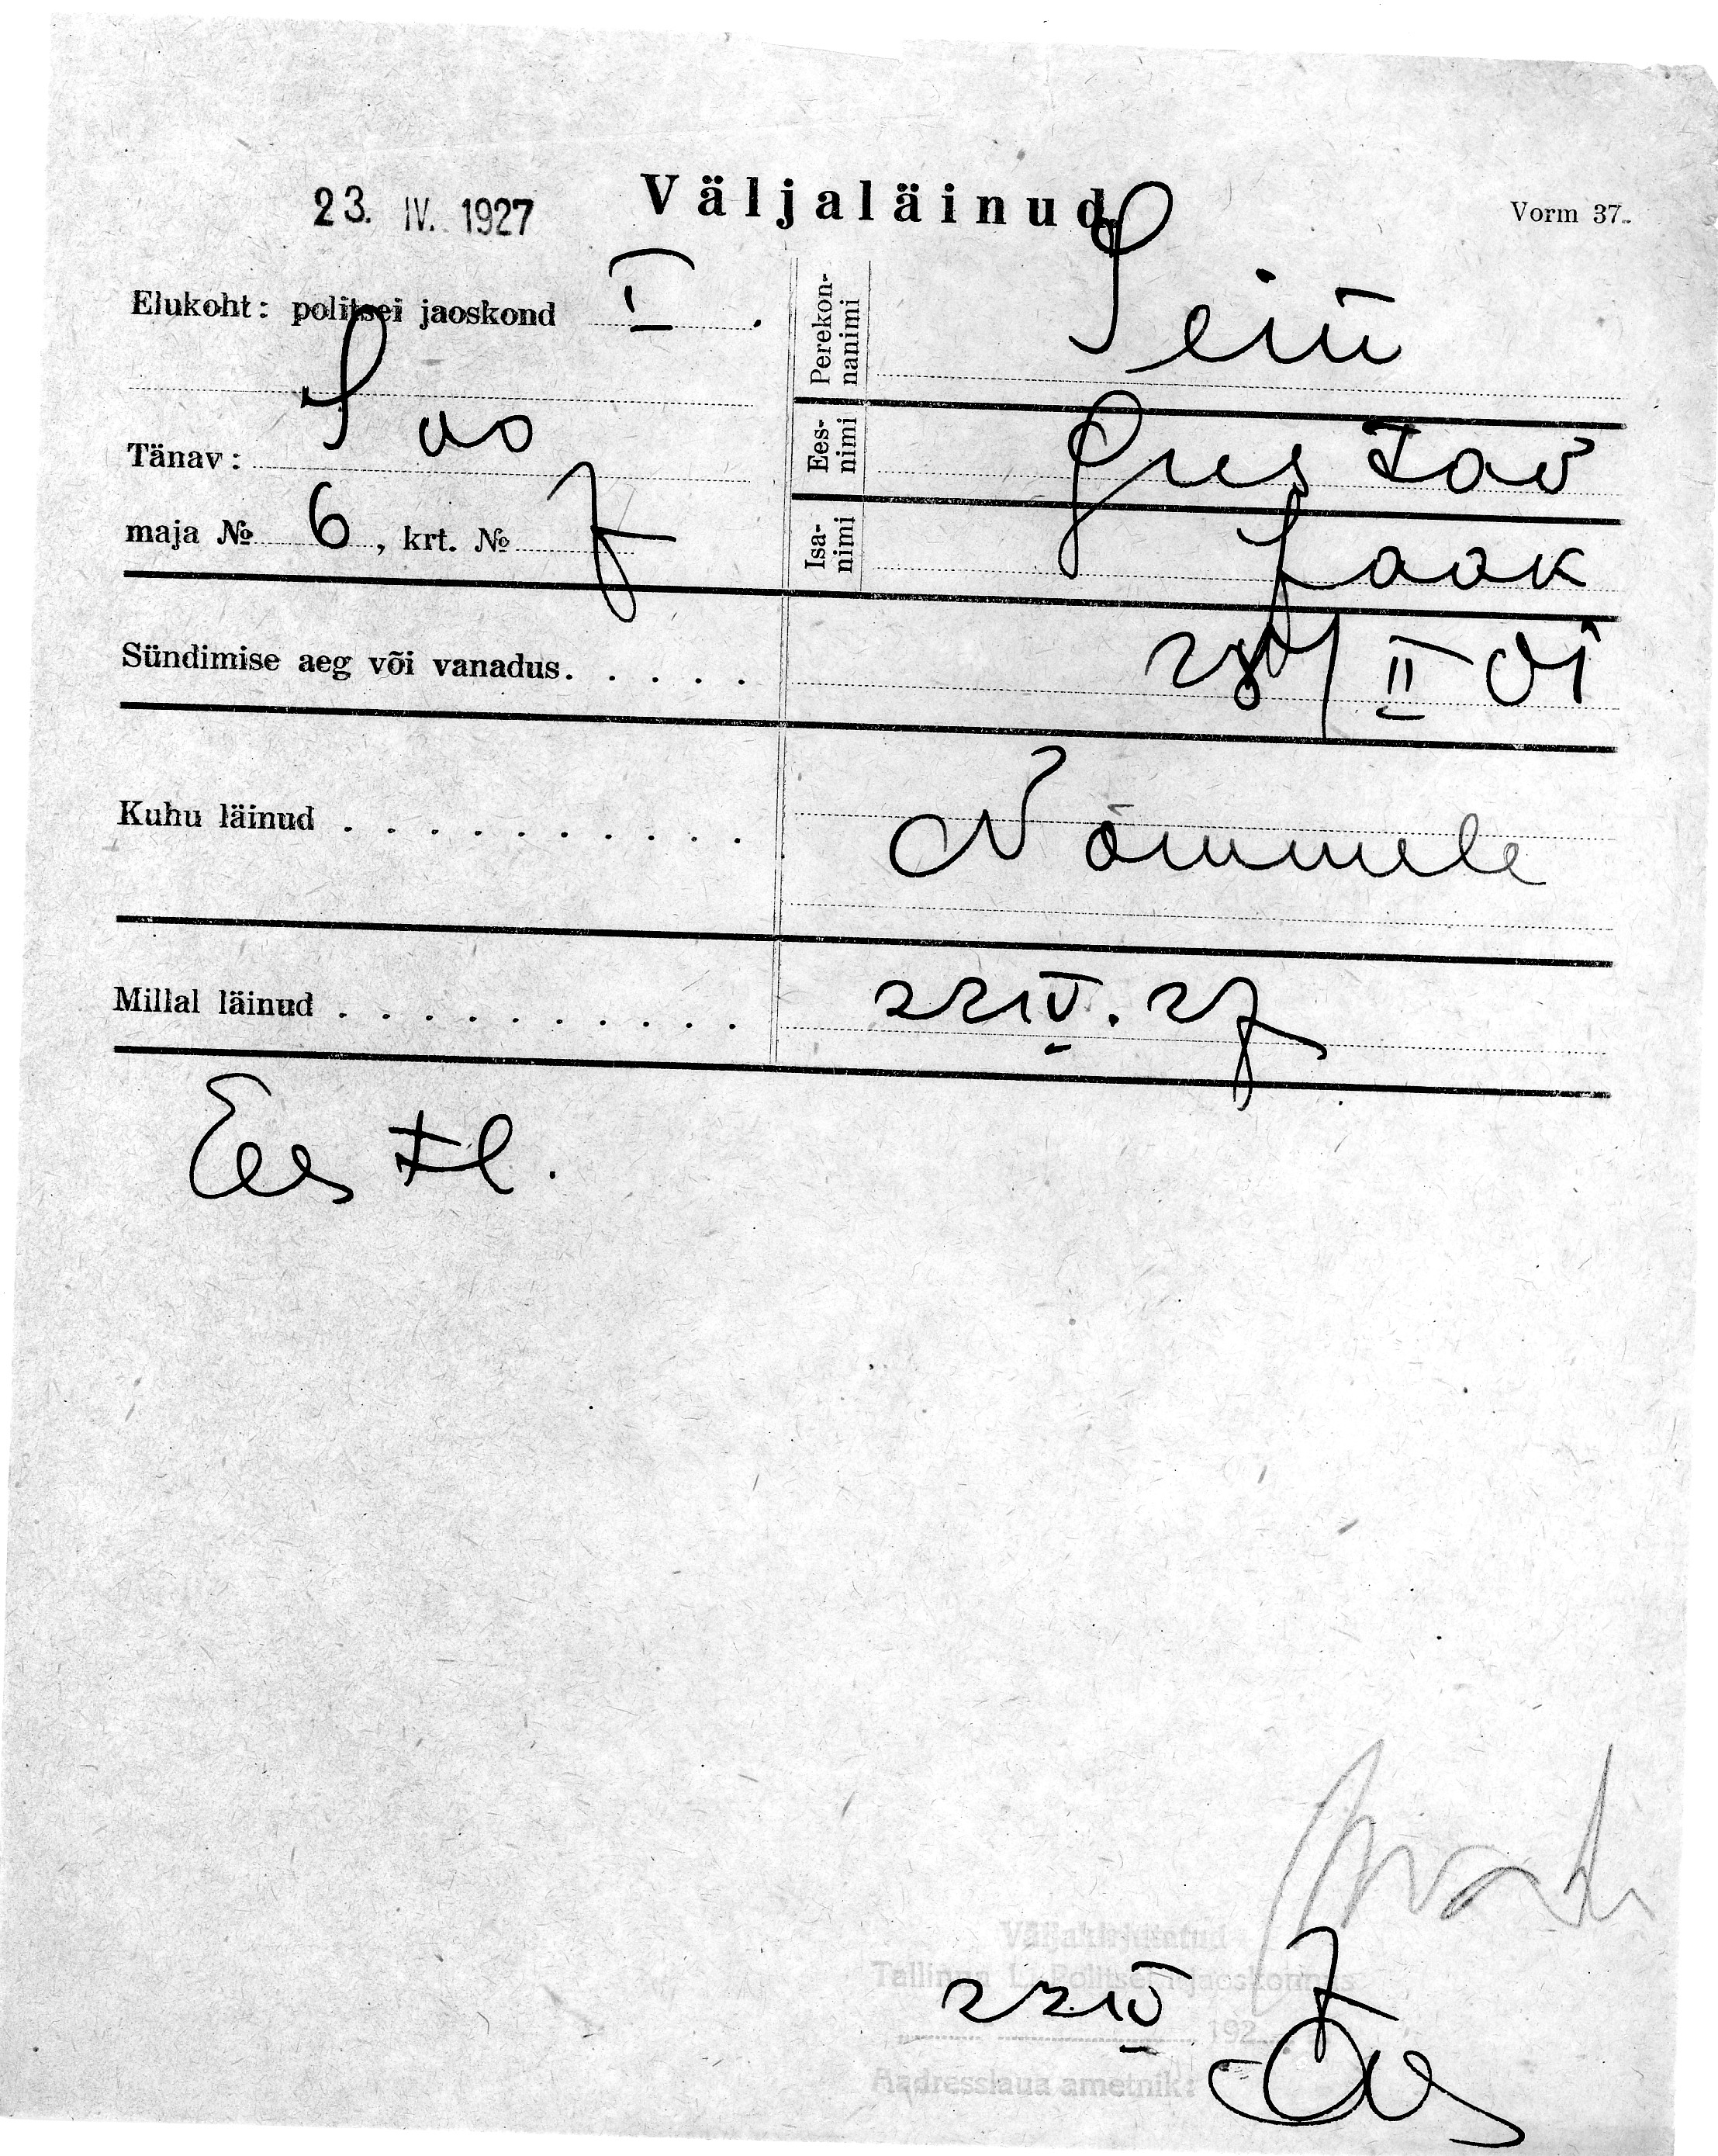 23. IV. 1927
Väljaläinud
Vorm 37.
Elukoht: politsei jaoskond I.
Tänav: Soo
maja № 6, krt. № 7
Perekon-
nanimi
Ees-
nimi Gustav
Isa-
nimi Jaak
Sündimise aeg või vanadus. . . . . 28/II 01
Kuhu läinud . . . . . . . . . . Nõmmele
Millal läinud . . . . . . . . . . 22 IV. 27
Eestl.
Väljakirjutatud
Tallinna L. Politsei I jaoskonnas
22 IV 1927
Aadresslaua ametnik: